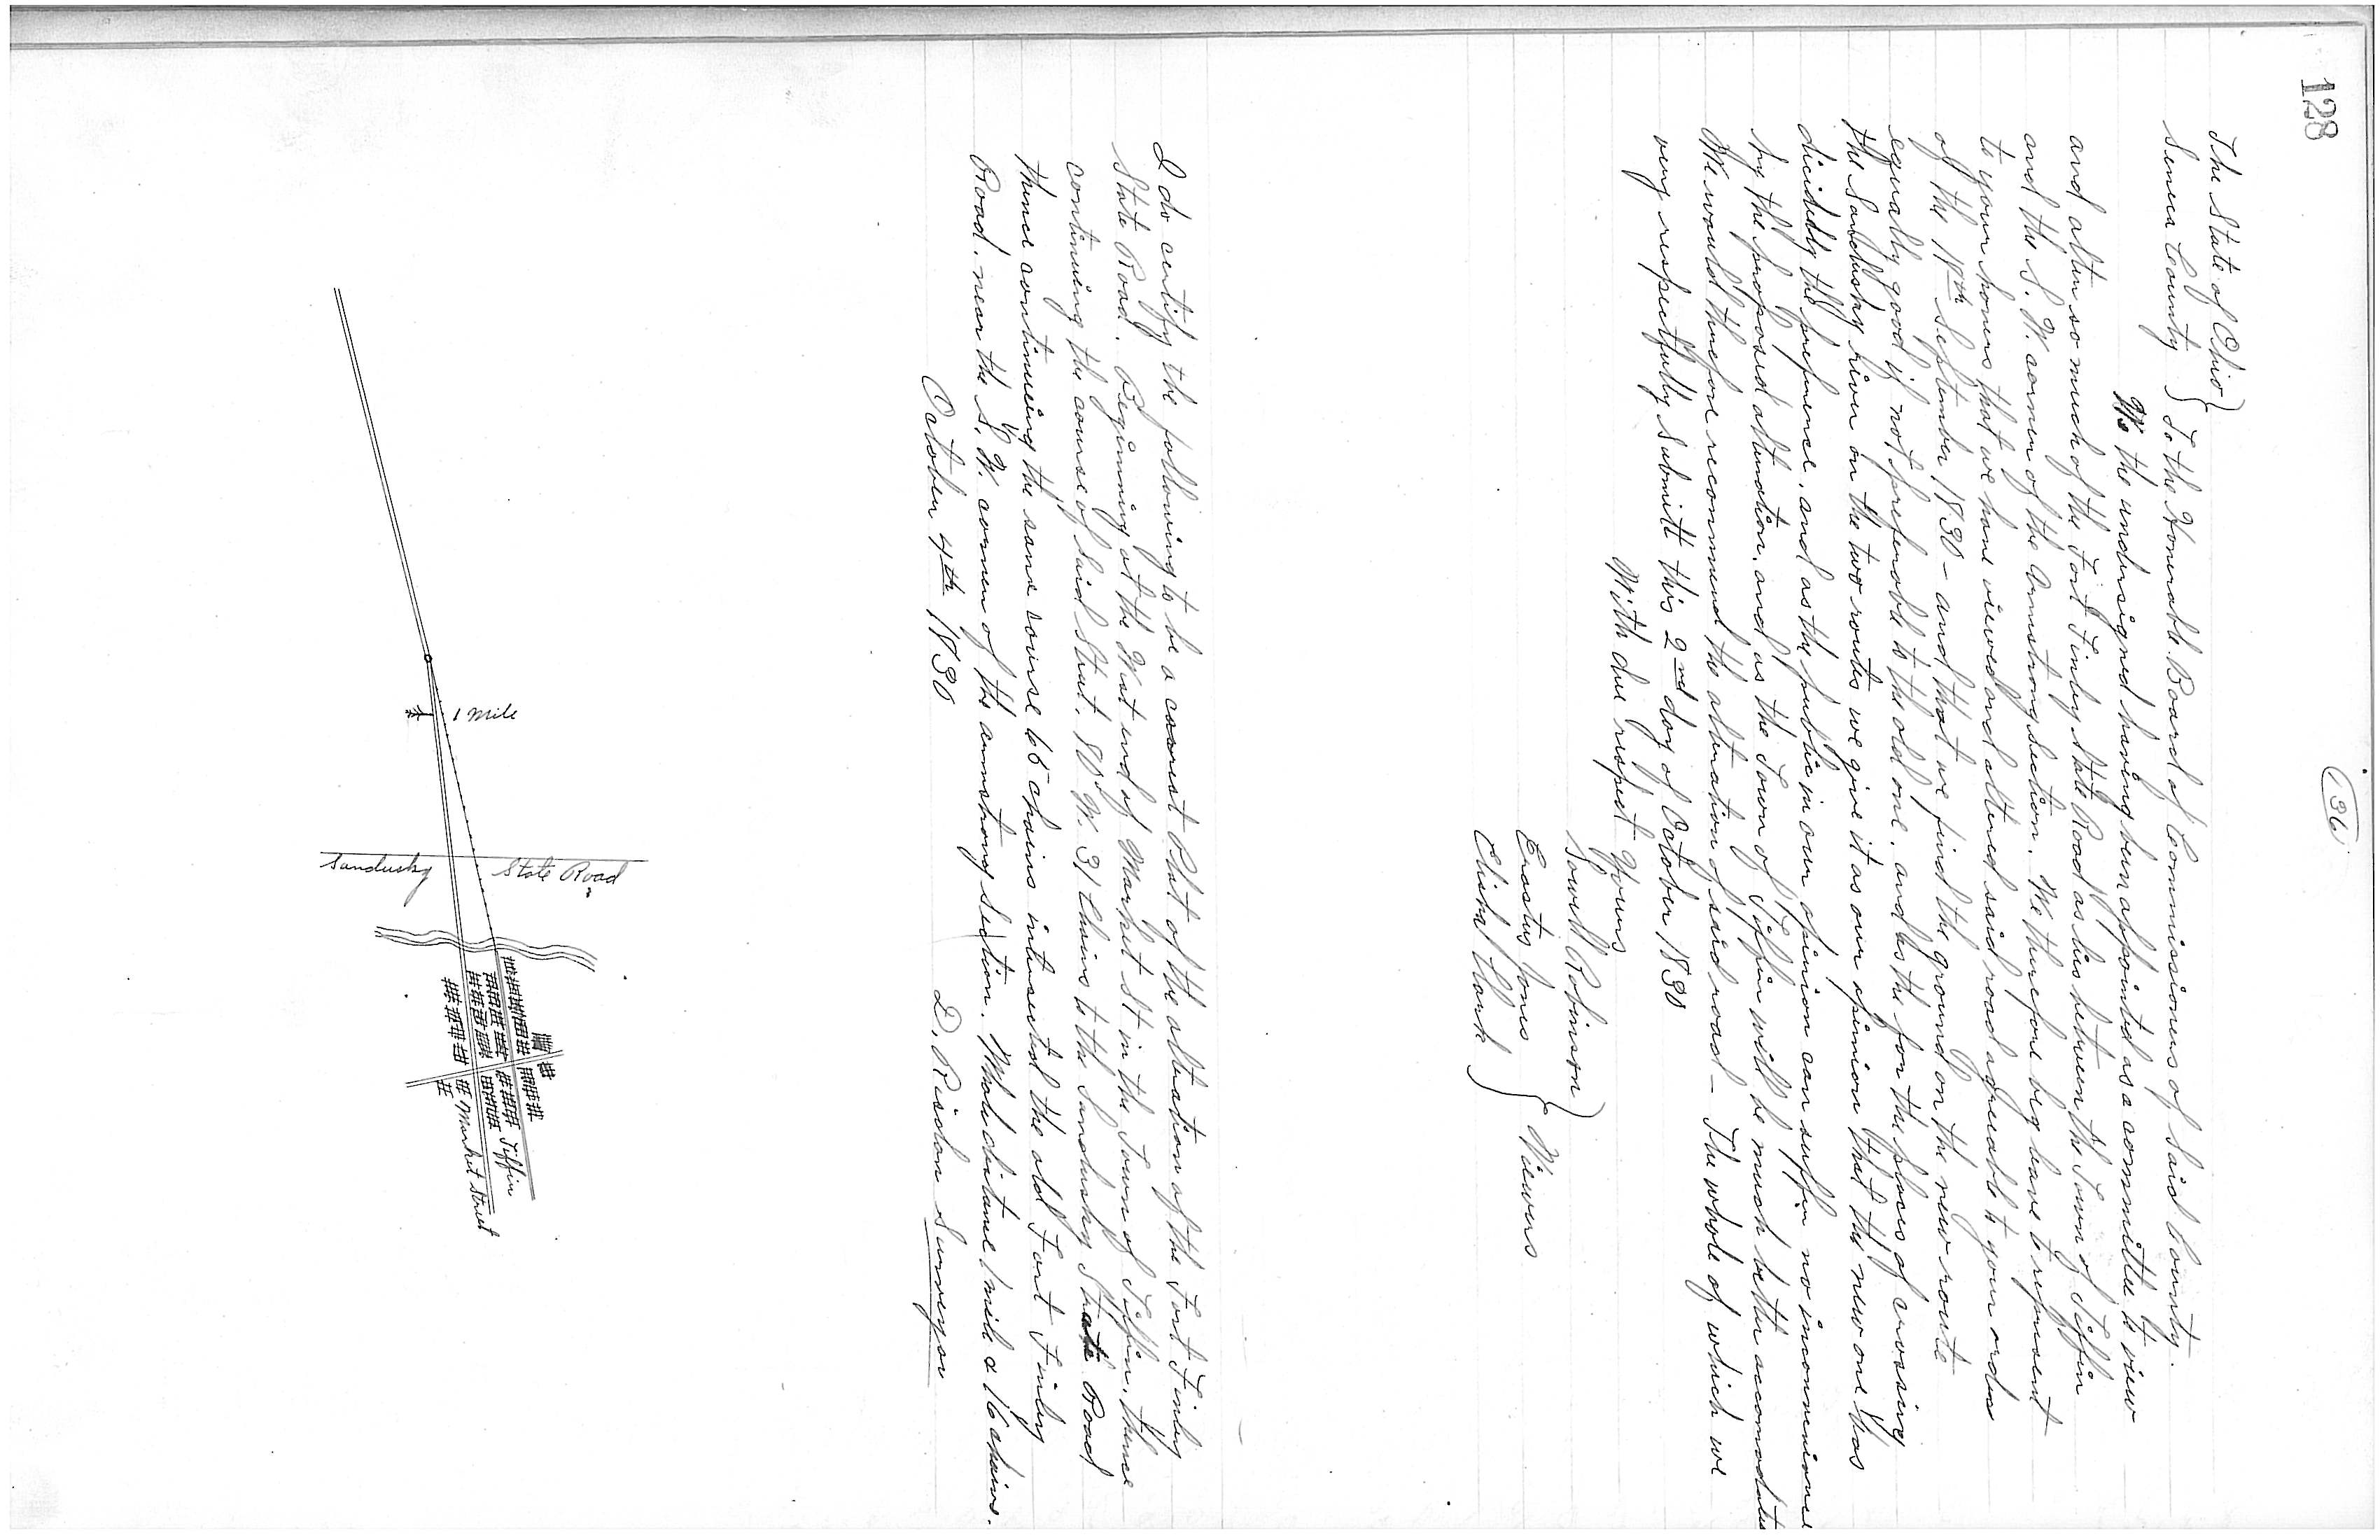 128
36
The State of Ohio }
Seneca County } To the Honorable Board of Commissioners of Said County.
We the undersigned having been appointed as a committee to view
and alter so much of the Fort Finley State Road as lies between the Town of Tiffin
and the S. W. corner of the Armstrong section. We therefore beg leave to represent
to your honers that we have viewed and altered said road agreeable to your order
of the 18th September 1830 - and that we find the ground on the new route
equally good if not preferable to the old one, and as the for the places of crossing
the Sandusky river on the two routes we give it as our opinion that the new one has
dicidedly the preference, and as the public in our opinion can suffer no inconvenience
by the proposed alteration, and as the Town of Tiffin will be much better accomodated
We would therefore recommend the alteration of said road - The whole of which we
very respectfully submitt this 2nd day of October 1830
With due respect Yours
Sowell Robinson }
Erastus Jones } Viewers
Elisha Clark }
I do certify the following to be a correct Plat of the alteration of the Fort Finley
State Road. Beginning at the West end of Market St in the Town of Tiffin, thence
continuing the course of said Street. 80° W. 31 Chains to the Sandusky State Road
thence continueing the same course 65 chains intersected the old Fort Finley
Road, near the S. W. corner of the armstrong section. Whole distance 1 mile & 16 chains.
October 4th 1830
D. Risdon Surveyor
1 mile
Sandusky State Road
Tiffin
Market Street